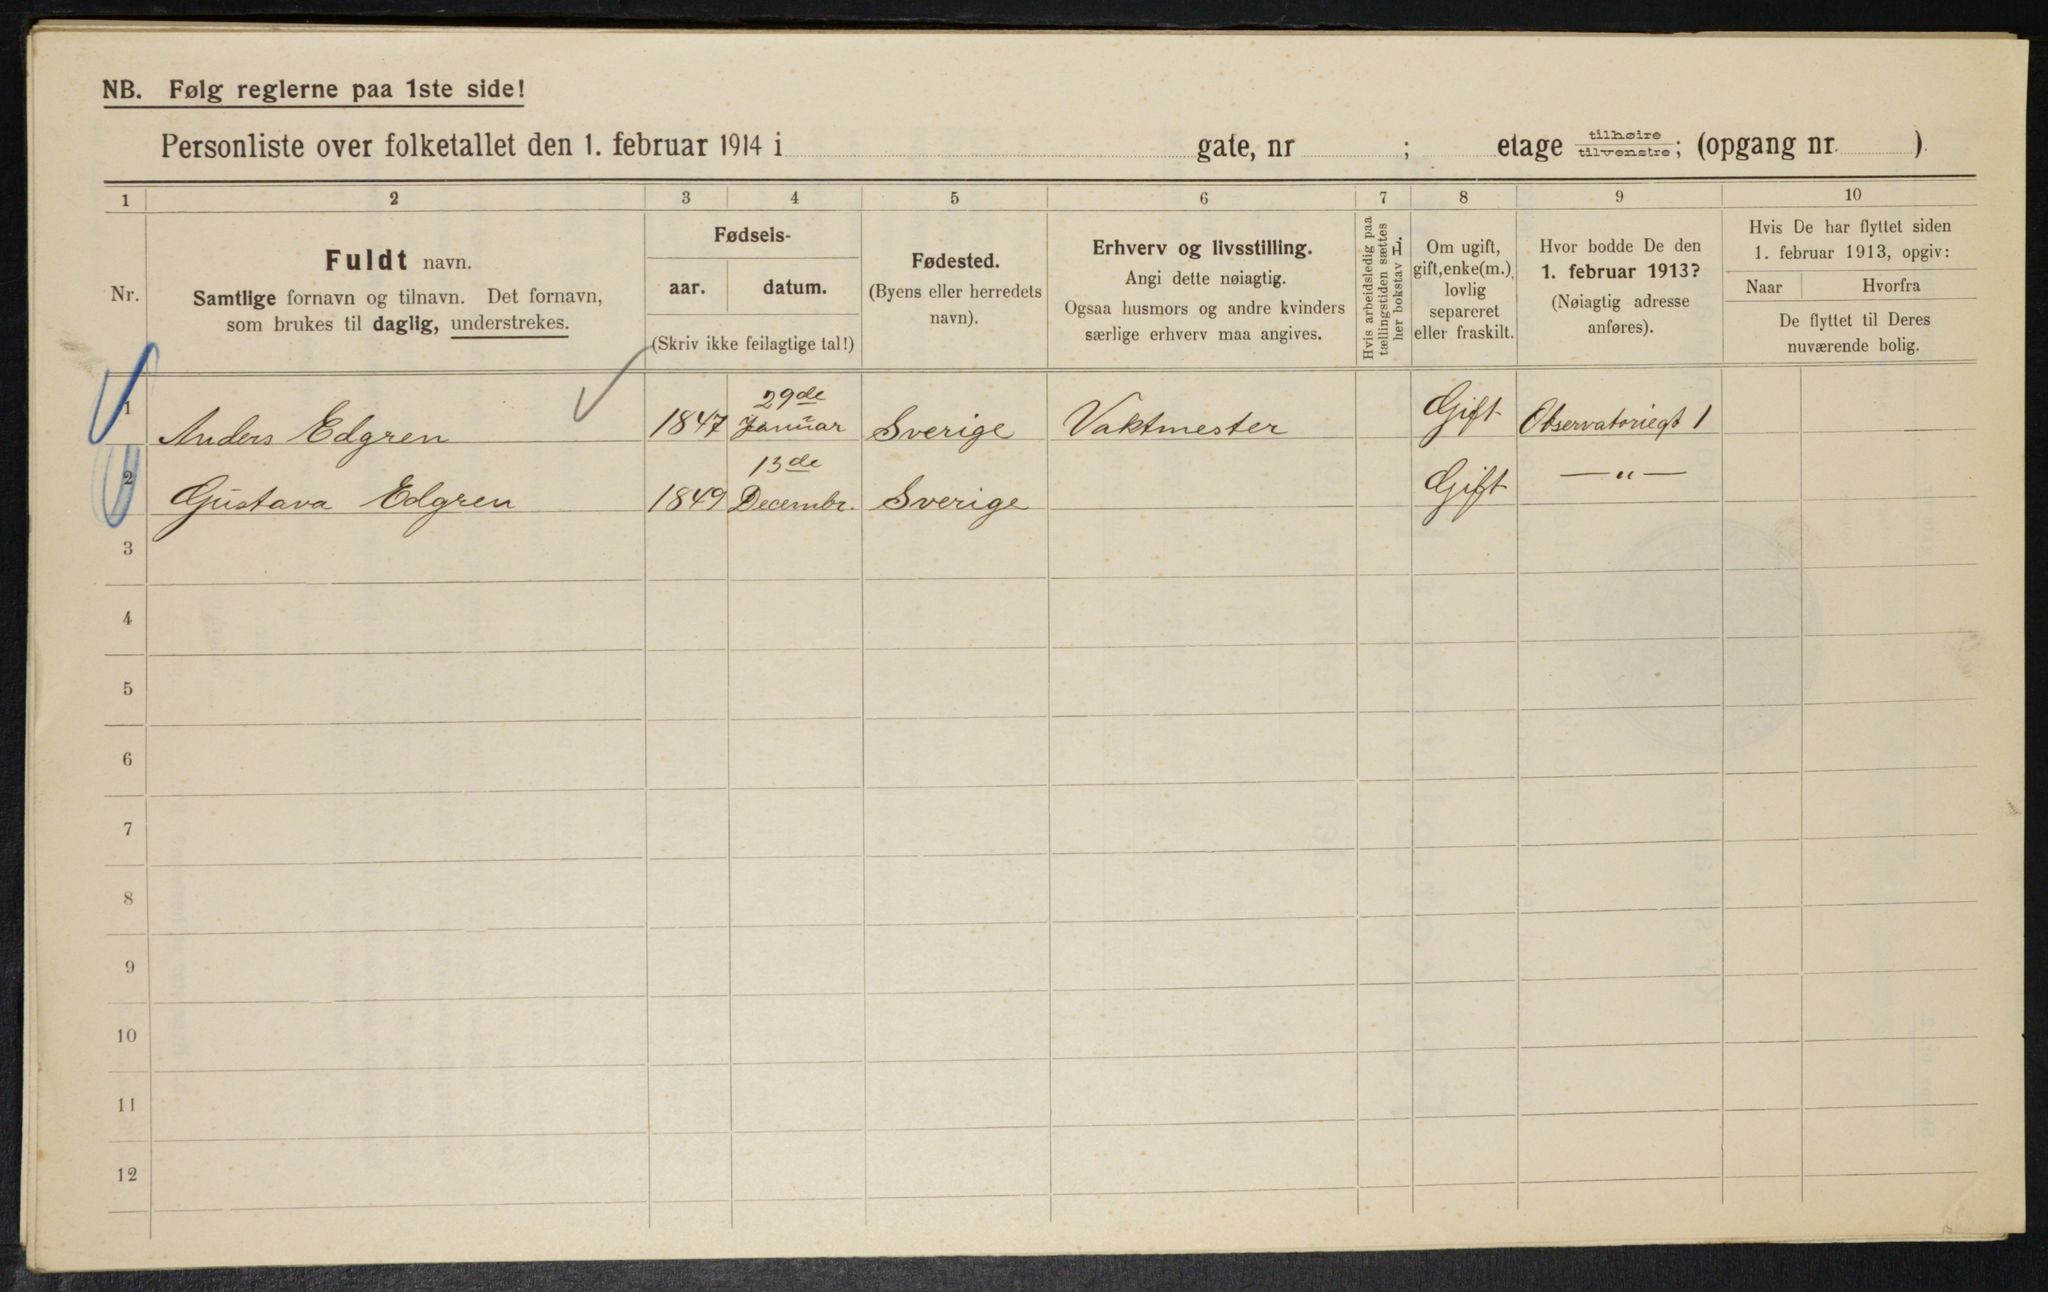 NB. Følg reglerne paa 1ste side!
Personliste over folketallet den 1. februar 1914 i gate, nr ; etage tilhøire/tilvenstre; (opgang nr. )
1 2 3 4 5 6 7 8 9 10
Nr.
Fuldt navn.
Samtlige fornavn og tilnavn. Det fornavn,
som brukes til daglig, understrekes.
Fødsels-
aar. datum.
(Skriv ikke feilagtige tal!)
Fødested.
(Byens eller herredets
navn).
Erhverv og livsstilling.
Angi dette nøiagtig.
Ogsaa husmors og andre kvinders
særlige erhverv maa angives.
Hvis arbeidsledig paa
tællingstiden sættes
her bokstav L.
Om ugift,
gift, enke(m.),
lovlig
separeret
eller fraskilt.
Hvor bodde De den
1. februar 1913?
(Nøiagtig adresse
anføres).
Hvis De har flyttet siden
1. februar 1913, opgiv:
Naar Hvorfra
De flyttet til Deres
nuværende bolig.
1 Anders Edgren 1847 29de Januar Sverige Vaktmester Gift Observatoriegt 1
2 Gustava Edgren 1849 13de Decembr. Sverige Gift — " —
3
4
5
6
7
8
9
10
11
12